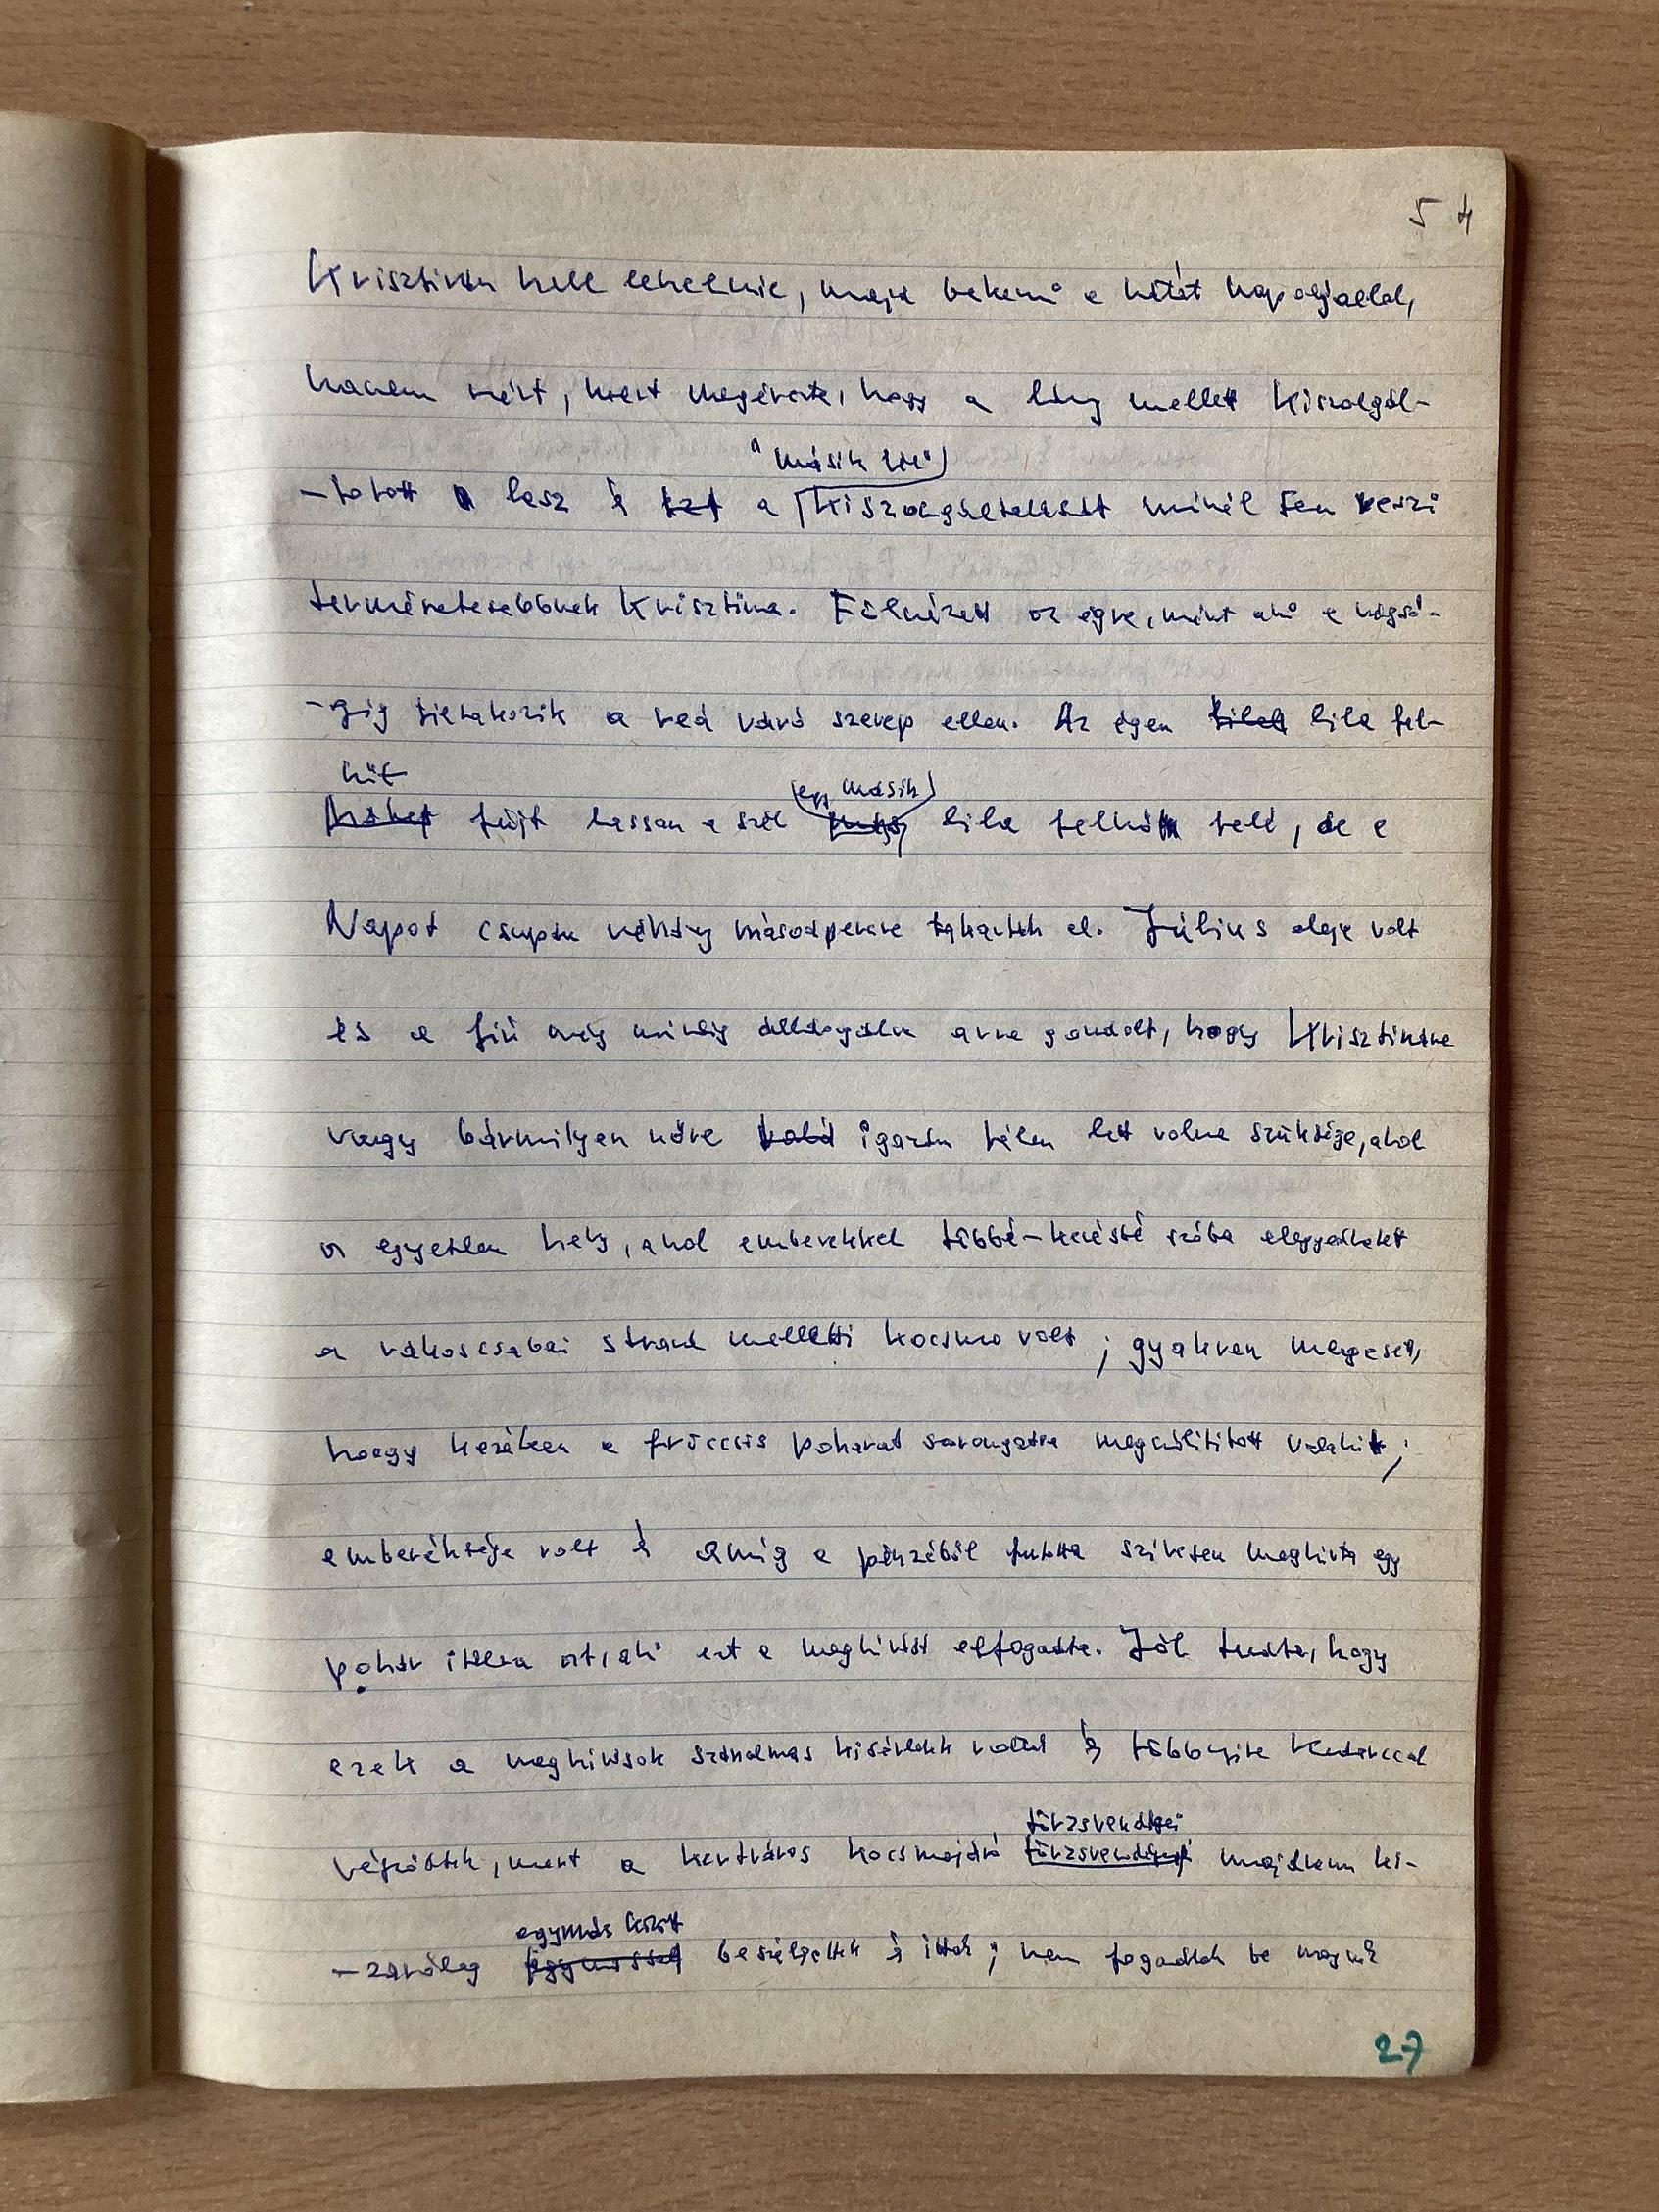 54
Krisztinán kell lehetnie, majd bekeni a hátát napolajjal,
hanem mért, mert megérezte, hogy a lány mellett kiszolgál-
"másik lét"
-tatott lesz és ezt a kiszolgáltatását minél fen veszi
természetesebbnek Krisztina. Fölnézett az égre, mint aki a végső-
-kig tiltakozik a reá váró szerep ellen. Az égen lila fel-
hőt
fújt lassan a szél egy másik lila felhő felé, de a
Napot csupán néhány másodpercre takarták el. Július eleje volt
és a fiú még mindig álldogálva arra gondolt, hogy Krisztinára
vagy bármilyen nőre igazán télen lett volna szüksége, ahol
az egyetlen hely, ahol emberekkel többé-kevésbé szóba elegyedhetett
a rákoscsabai strand melletti kocsma volt; gyakran megesett,
hogy kezében a fröccsös poharat szorongatva megszólitott valakit;
emberéhsége volt és amig a pénzéből futotta szivesen meghivta egy
pohár italra azt, aki ezt a meghivást elfogadta. Jól tudta, hogy
ezek a meghivások szánalmas kisérletek voltak és többnyire kudarccal
végződtek, mert a kertváros kocsmájának
törzsvendégei
majdnem ki-
egymás közt
-zárólag beszélgettek és ittak; nem fogadtak be maguk
27